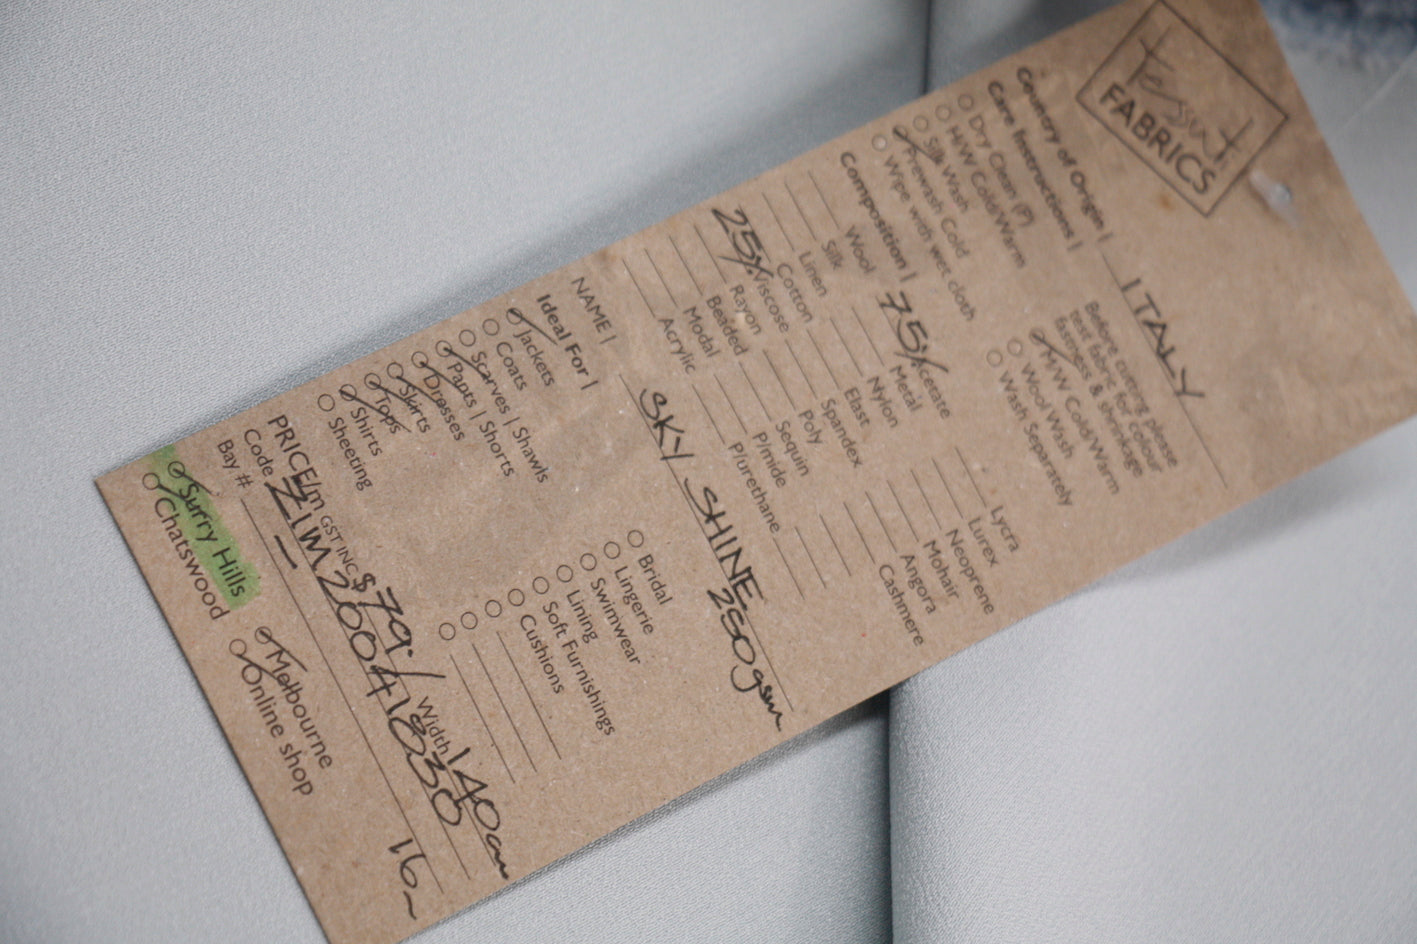 tessuti
FABRICS
Country of Origin | ITALY
Care Instructions |
Before cutting please
test fabric for colour
fastness & shrinkage
Dry Clean (P)
H/W Cold/Warm
Silk Wash
Prewash Cold
Wipe with wet cloth
H/W Cold/Warm
Wool Wash
Wash Separately
Composition |
Wool
Silk
Linen
Cotton
25% Viscose
Rayon
Beaded
Modal
Acrylic
75% Acetate
Metal
Nylon
Elast
Spandex
Poly
Sequin
P/mide
P/urethane
Lycra
Lurex
Neoprene
Mohair
Angora
Cashmere
NAME | SKY SHINE
250gsm
Ideal For |
Jackets
Coats
Scarves | Shawls
Pants | Shorts
Dresses
Skirts
Tops
Shirts
Sheeting
Bridal
Lingerie
Swimwear
Lining
Soft Furnishings
Cushions
PRICE/m GST INC $79./ Width 140cm
Code ZZIM20041830
Bay # — 16~
Surry Hills
Chatswood
Melbourne
Online shop